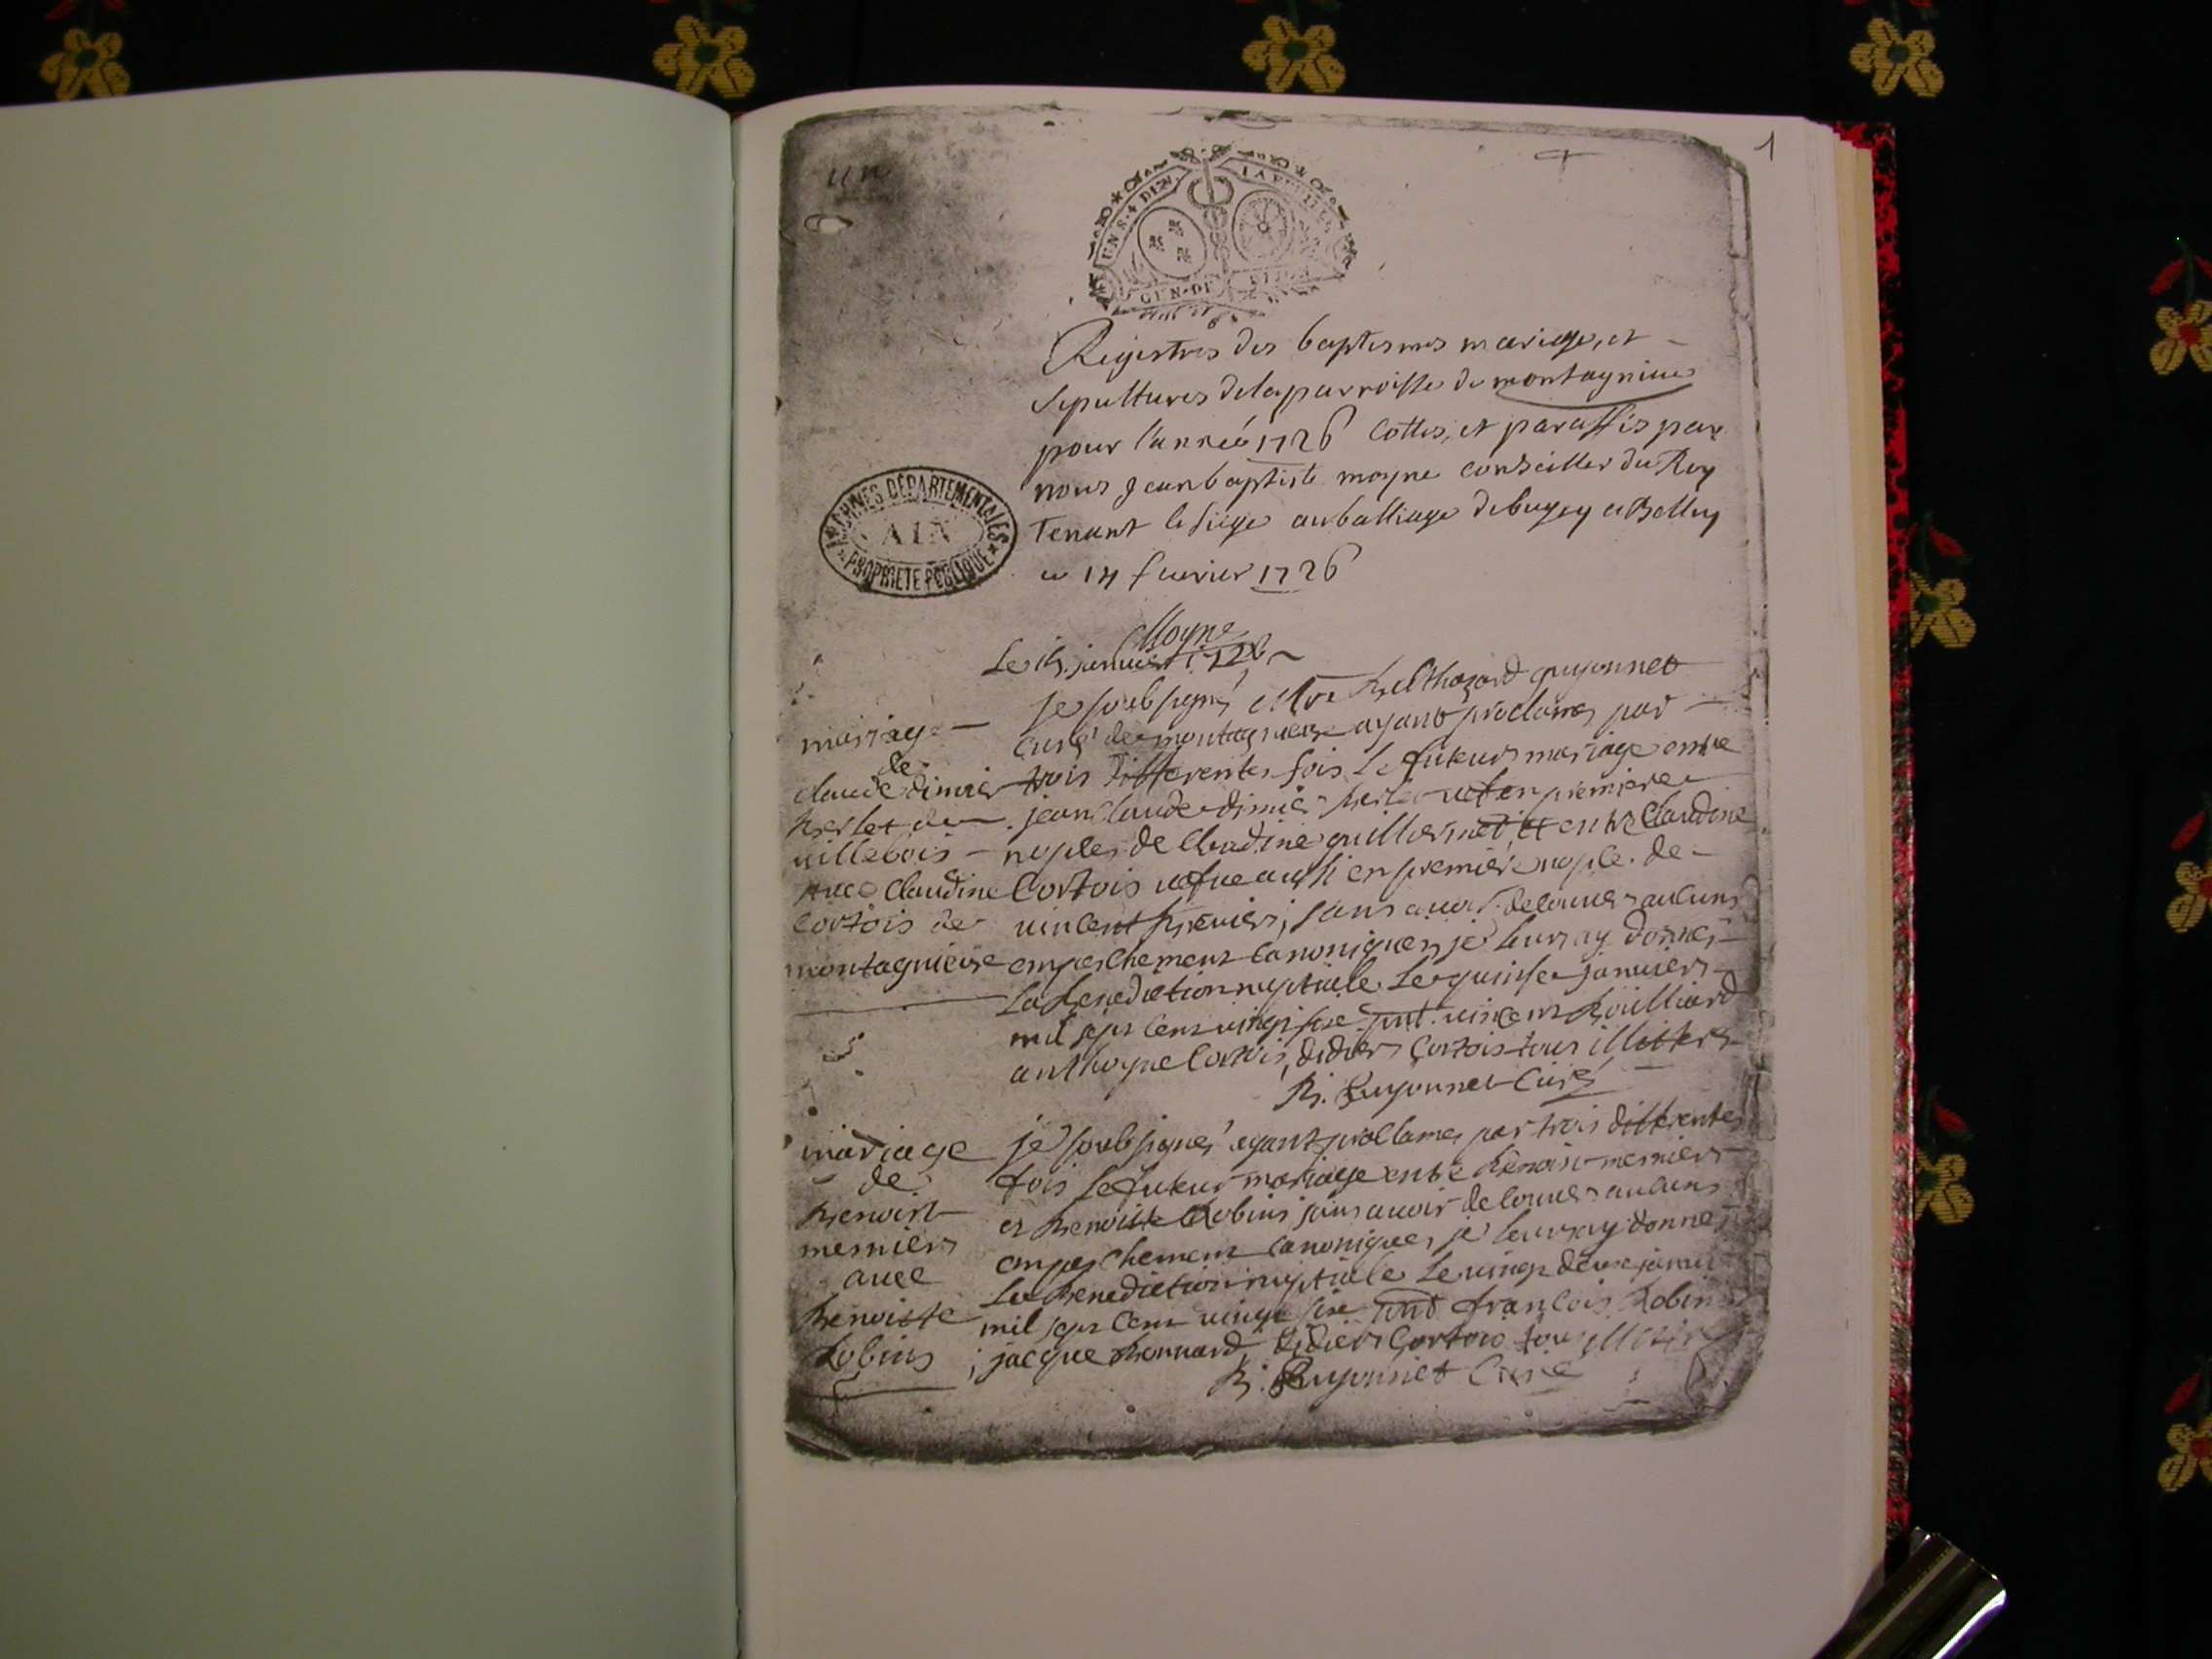 1
un
UN S. 4 DEN. LA FEUILLE
GEN. DE DIJON
Registres des baptesmes mariage, et
sepultures de la parroisse de montagnieu
pour l'année 1726 cottés, et paraffés par
nous Jean baptiste moyne conseiller du Roy
Tenant le siege au balliage de bugey a Belley
ce 14 feuvrier 1726
ARCHIVES DÉPARTEMENTALES
AIN
PROPRIÉTÉ PUBLIQUE
Moyne
Le 15 janvier 1726
mariage
de
claude dimier
berlet de
villebois
avec claudine
cortois de
montagnieux
je soubsigné Mre Balthazard guyonnet
curé de montagnieux ayant proclamé par
trois differentes fois le futeur mariage entre
jean claude dimier berlet vef en premiere
nopces de claudine guillermet et entre claudine
cortois vefue aussi en premiere nopce de
vincent brevier, sans avoir decouver aucuns
empeschement canonique, je leurs ay donné
la benediction nuptiale le quinse janvier
mil sept cent vingt sise pnt. vincent Roulliard
anthoyne cortois, didier cortois tous illiteres
B. Guyonnet Curé
mariage
de
benoist
mesnier
avec
benoiste
Robins
je soubsigné ayant proclamé par trois differentes
fois le futeur mariage entre benoist mesnier
et benoiste Robins sans avoir decouver aucuns
empeschement canonique, je leurs ay donné
la benediction nuptialle le vingt deuxe janvi
mil sept cent vingt sise pnt françois Robin
jacque bonnard, didier cortois tous illitere
B. Guyonnet Curé